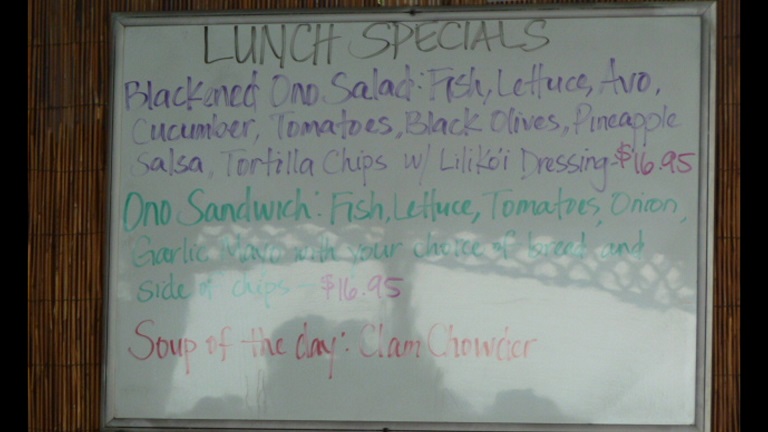 LUNCH SPECIALS
Blackened Ono Salad: Fish, Lettuce, Avo,
Cucumber, Tomatoes, Black Olives, Pineapple
Salsa, Tortilla Chips w/ Liliko'i Dressing-$16.95
Ono Sandwich: Fish, Lettuce, Tomatoes, Onion,
Garlic Mayo with your choice of bread and
side of chips - $16.95
Soup of the day: Clam Chowder